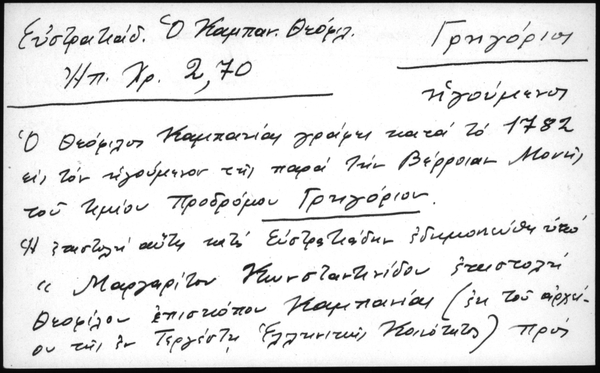 Εὐστρατιάδ. Ὁ Καμπαν. Θεόφιλ.
Ἠπ. Χρ. 2,70
Γρηγόριος
ἡγούμενος
Ὁ Θεόφιλος Καμπανίας γράφει κατά τό 1782
εἰς τόν ἡγούμενον τῆς παρά τήν Βέρροιαν Μονῆς
τοῦ τιμίου Προδρόμου Γρηγόριον.
Ἡ ἐπιστολή αὕτη κατά Εὐστρατιάδην ἐδημοσιεύθη ὑπό
" Μαργαρίτου Κωνσταντινίδου ἐπιστολή
Θεοφίλου ἐπισκόπου Καμπανίας (ἐκ τοῦ ἀρχεί-
ου τῆς ἐν Τεργέστῃ Ἑλληνικῆς Κοινότητος) πρός